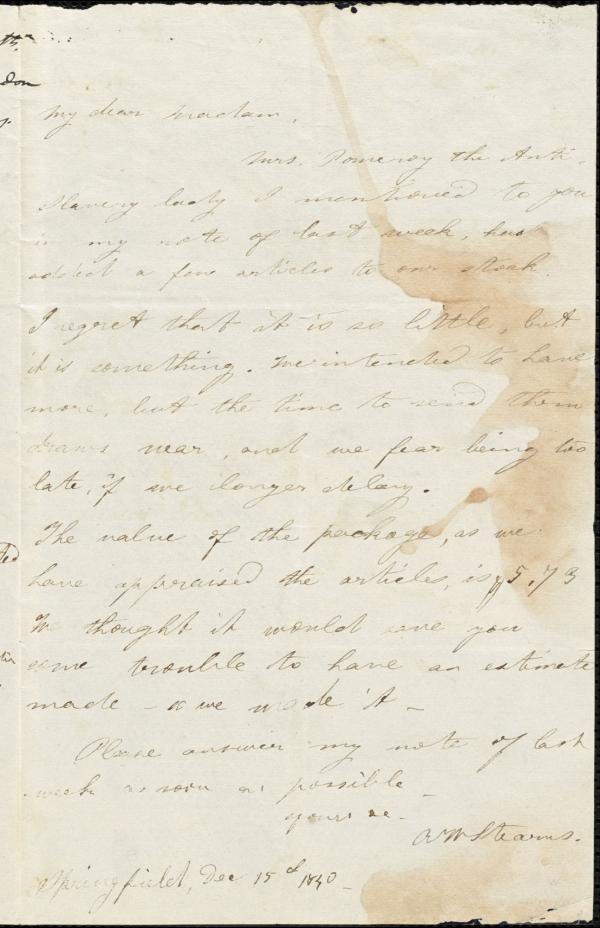 My dear Madam,
Mrs. Pomeroy the Anti-
Slavery lady I mentioned to you
in my note of last week, has
added a few articles to our stock.
I regret that it is so little, but
it is something. We intended to have
more, but the time to send them
draws near, and we fear being too
late, if we longer delay.
The value of the package, as we
have appraised the articles, is $5.73
We thought it would save you
some trouble to have an estimate
made - & we made it -
Please answer my note of last
week as soon as possible -
yours &c -
A W Stearns.
Springfield, Dec 15 1840 -